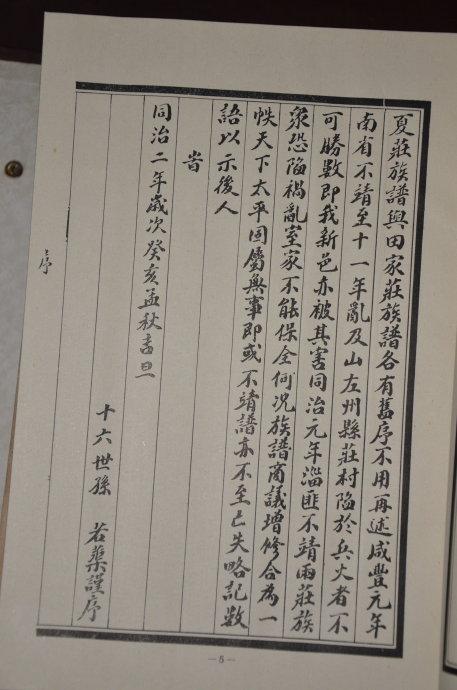 夏莊族譜與田家莊族譜各有舊序不用再述咸豐元年
南省不靖至十一年亂及山左州縣莊村陷於兵火者不
可勝數即我新邑亦被其害同治元年淄匪不靖兩莊族
衆恐陷禍亂室家不能保全何況族譜商議增修合為一
帙天下太平固屬無事即或不靖譜亦不至亡失略記數
語以示後人
旹
同治二年歲次癸亥孟秋吉旦
十六世孫 若蘂謹序
序
—5—